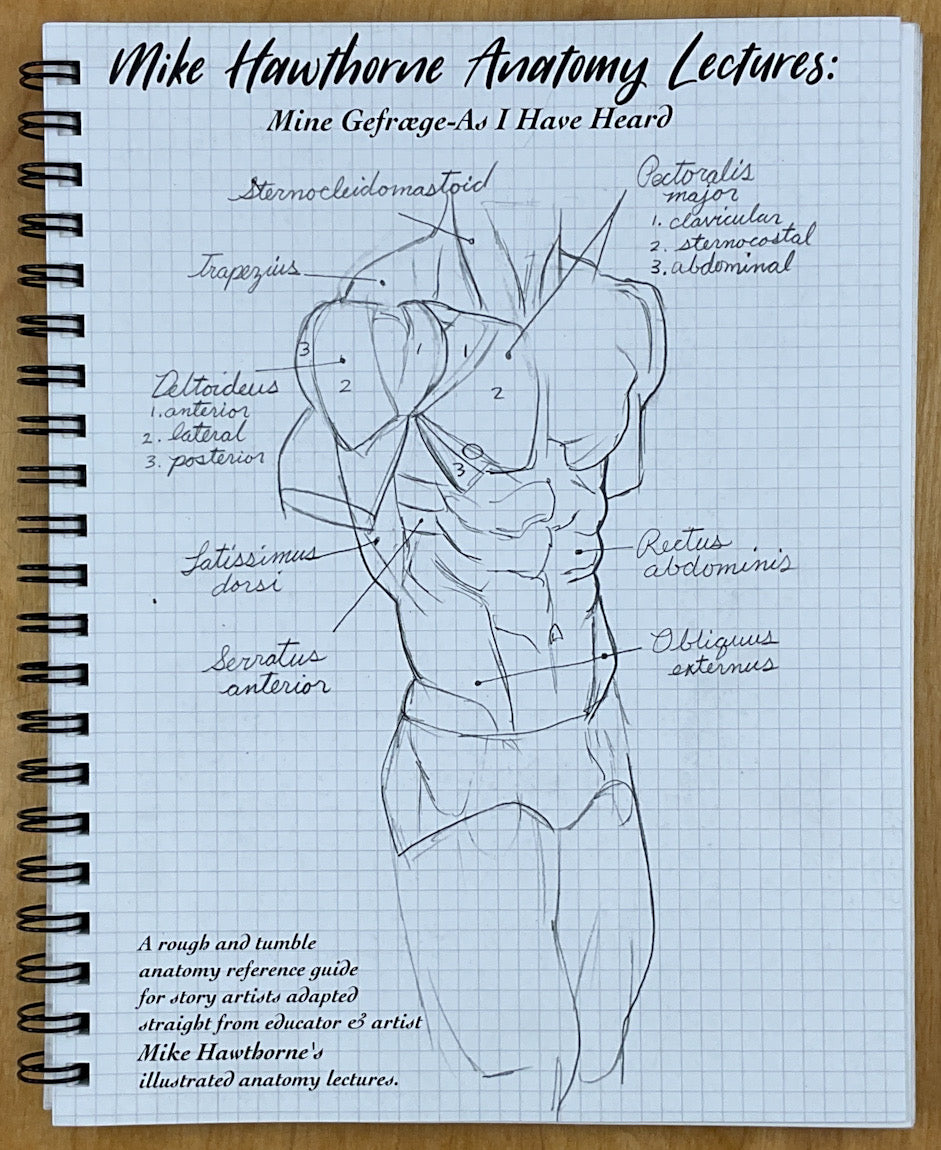 Mike Hawthorne Anatomy Lectures:
Mine Gefræge-As I Have Heard
Sternocleidomastoid
Trapezius
Pectoralis
major
1. clavicular
2. sternocostal
3. abdominal
3
2
1
1
2
3
Deltoideus
1. anterior
2. lateral
3. posterior
Latissimus
dorsi
Rectus
abdominis
Serratus
anterior
Obliquus
externus
A rough and tumble
anatomy reference guide
for story artists adapted
straight from educator & artist
Mike Hawthorne's
illustrated anatomy lectures.